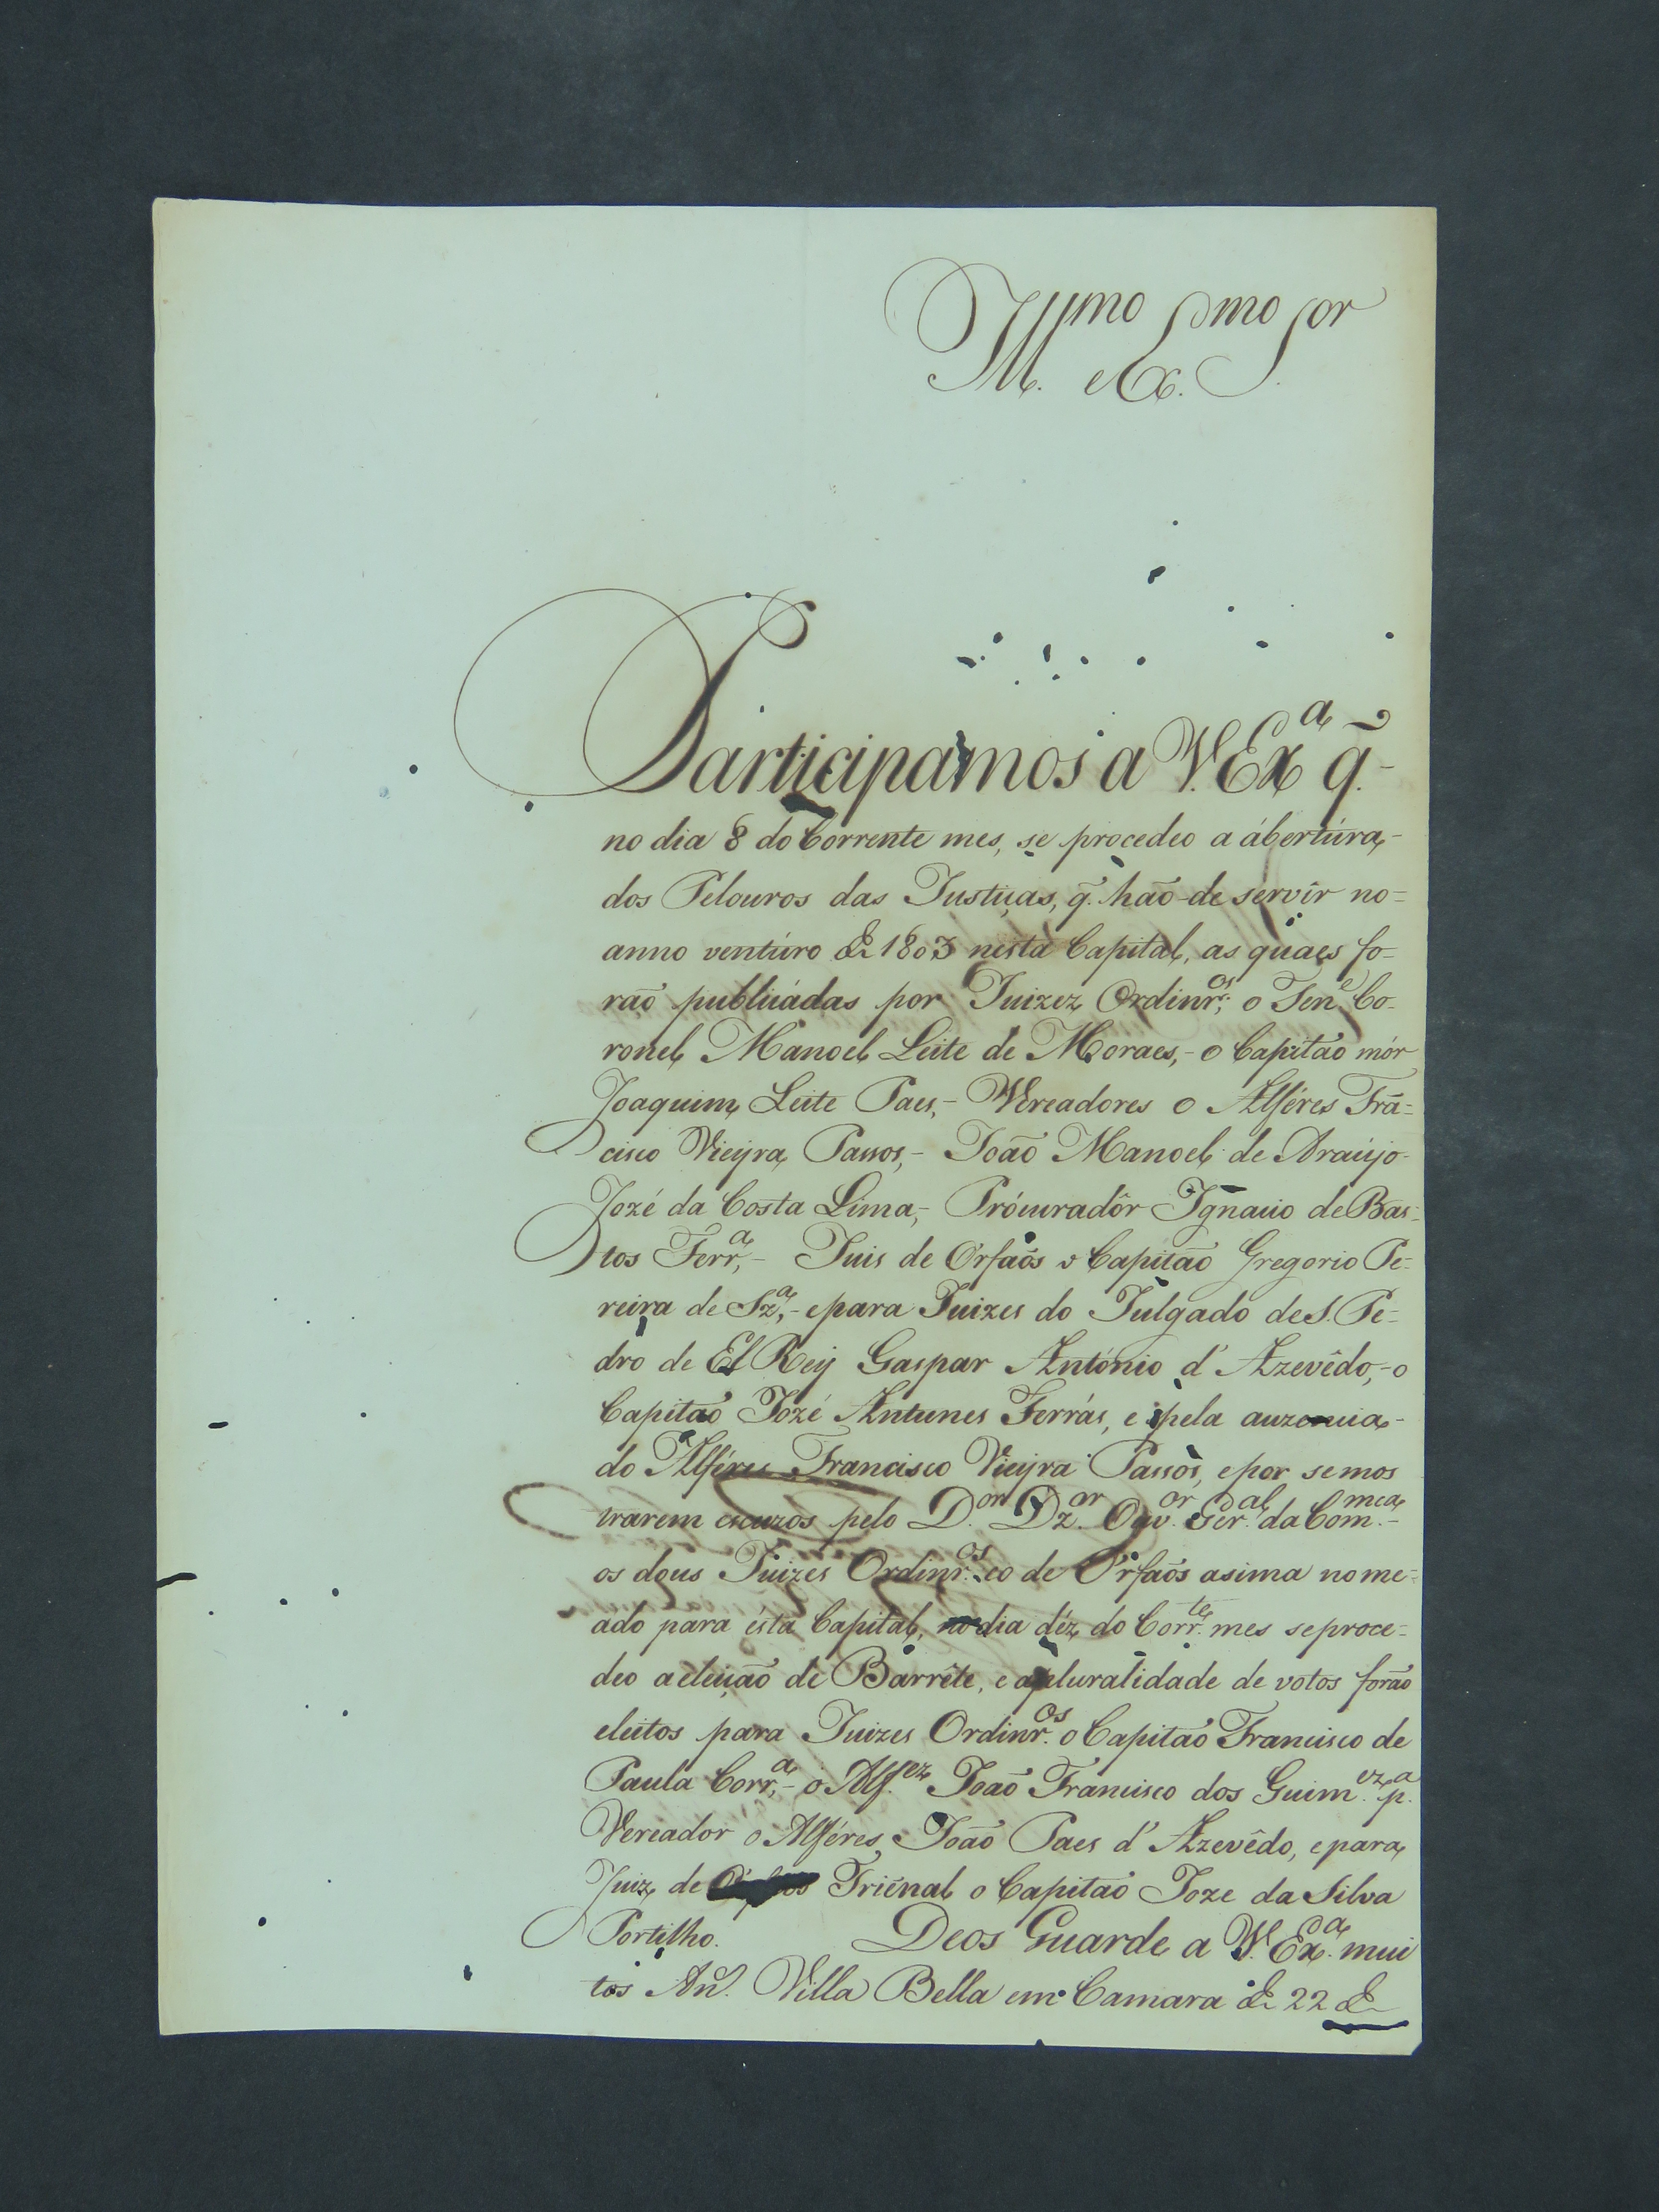 Ill.mo e Ex.mo S.or
Participamos a V. Ex.a q̃.
no dia 8 do Corrente mes, se procedeo a ábertúra,-
dos Pelouros das Justiças, q̃. haõ-de servîr no=
anno ventúro de 1803 nésta Capital, as quaes fo=
raõ publicádas por Juizez Ordinr.os; o Ten.e Co-
ronel Manoel Leite de Moraes,- o Capitaõ mór
Joaquim Leite Paes,- Vereadores o Alféres Frã=
cisco Vieyra Passos,- Joaõ Manoel de Araújo-
Jozé da Costa Lima,- Prócuradôr Ignacio de Bas=
tos Ferr.a,- Juis de Orfaõs o Capitaõ Gregorio Pe=
reira de Sz.a,- epara Juizes do Julgado de S. Pe=
dro de El Rey Gaspar António d' Azevêdo,-o
Capitaõ Jozé Antunes Ferrás, e pela auzencia-
do Alféres Francisco Vieyra Passos, epor semos
trarem escuzos pelo D.or Dz.or Ouv.or Ger.al da Com.mca-
os dous Juizes Ordinr.os eo de Orfaõs asima nome=
ado para ésta Capital, no dia déz do Corr.te mes seproce=
deo aeleiçaõ de Barrête, e apluralidade de votos foraõ
eleitos para Juizes Ordinr.os o Capitaõ Francisco de
Paula Corr.a,- o Alf.ez Joaõ Francisco dos Guim.ez p.a
Vereador o Alféres Joaõ Paes d' Azevêdo, epara
Juiz de Triénal o Capitaõ Joze da Silva
Portilho. Deos Guarde a V. Ex.a mui
tos An.s Villa Bella em Camara de 22 de